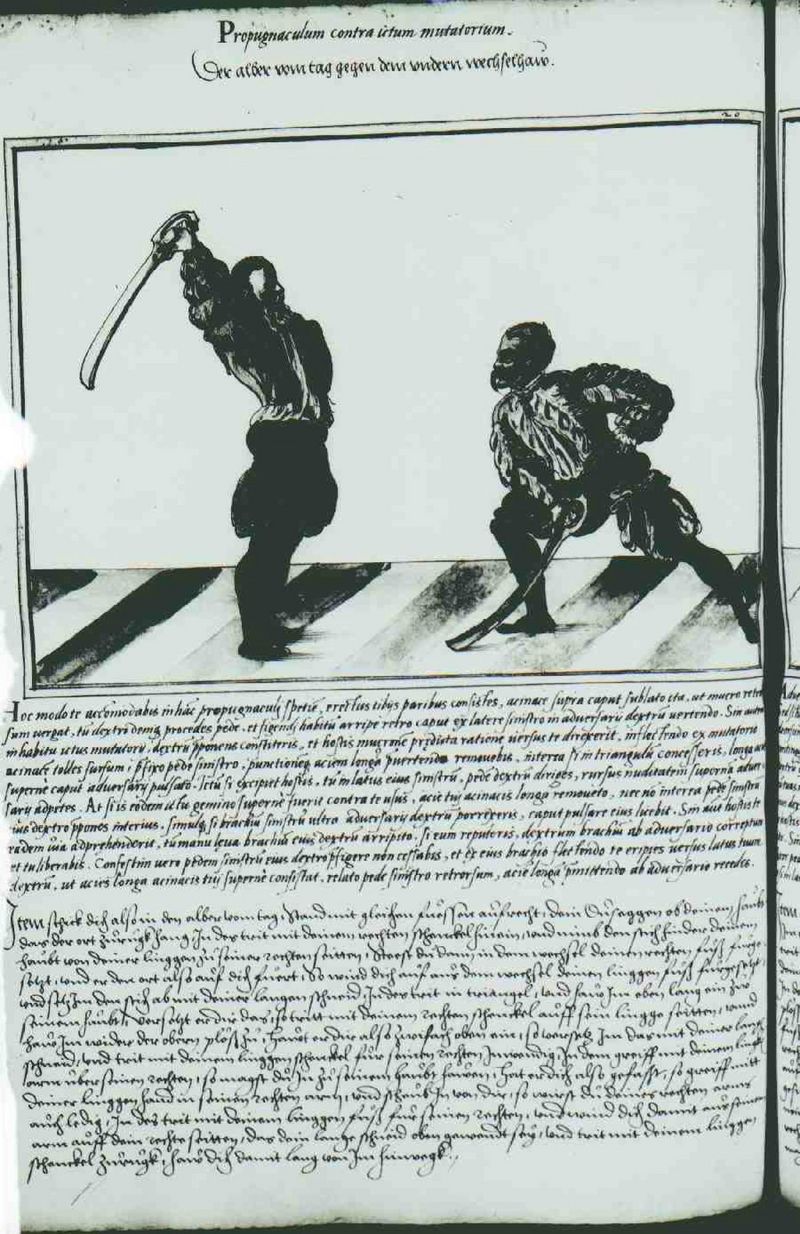 Propugnaculum contra ictum mutatorium.
Der alber vom tag gegen dem undern wechselhaw.
20
Hoc modo te accomodabis in hac propugnaculi specie, erectus tibijs paribus consistes, acinace supra caput sublato ita, ut mucro retro
sum vergat, tu dextro demum procedes pede, et figendi habitu arripe retro caput ex latere sinistro in adversarij dextrum vertendo. Sin autem
in habitu ictus mutatorij dextrum pponens constiteris, et hostis mucronem predicta ratione versus te direxerit, inflectendo ex mutatorio
acinacem tolles sursum pfixo pede sinistro, punctionem aciem longa removebis, interea si in triangulum concesseris, longa
superne caput adversarij pulsato. Ictum si excipiet hostis, tum in latus eius sinistrum, pede dextrum diriges, rursus nuditatem supernam adver
sarij adpetes. At si is eodem ictu gemino superne fuerit contra te usus, acie tuj acinacis longa removeto, nec no interea pede sinistrum
eius dextro pponas interius, simulq si brachium sinistrum ultra adversarij dextrum porrexeris, caput pulsare eius licebit. Sin aut hostis te
eadem via adprehenderit, tum manu leva brachium eius dextrum arripito. si eum repuleris, dextrum brachium ab adversario correptum
et tu liberabis. Confestim vero pedem sinistrum eius dextro pfigere non cessabis, et ex eius brachio flectendo te eripies versus latus tuum
dextrum, ut acies longa acinacis tui superne consistat, relato pede sinistro retrorsum, acie longa pmittendo ab adversario recedes.
Item schick dich also in den alber vom tag, Stand mit gleichen fuessen aufrecht, dein Dusaggen ob deinem haubt
das der ort zurugk hang In des trit mit deinem rechten schenckel hinein, und nimb den stich hinder deinem
haubt von deiner linggen zu seiner rechten seitten, Steest du dann in dem wechsel deinen rechten fuß furge
setzt, und er den ort also auf dich fuert, So wind dich auf aus dem wechsel deinen linggen fuß furgesetzt,
und setz Im den stich ab mit deiner langen schneid Indes trit in triangel, und haw Im oben lang ein zu
seinem haubt, versetzt er dir das, so trit mit deinem rechten schenckel auff sein lingge seitten, und
haw Im wider der obern plöß zu, hawt er dir also zwifach oben ein, so versetz Im das mit deiner lang
schneid, und trit mit deinem linggen schenckel fur seinen rechten Inwendig, In dem greiff mit deinem lingk
arm uber seinen rechten, so magst du Im zu seinem haubt hawen, hat er dich also gefasst, so greiff mitt
deiner linggen hand in seinen rechten arm, und scheub In von dir, so wirst du deines rechten arms
auch ledig, In des trit mit deinem linggen fuß fur seinen rechten, und wind dich damit aus seinem
arm auff dein rechte seitten, das dein lange schneid oben gewandt sey, und trit mit deinem lingge
schenckel zurugk, haw dich damit lang von Im hinwegk.